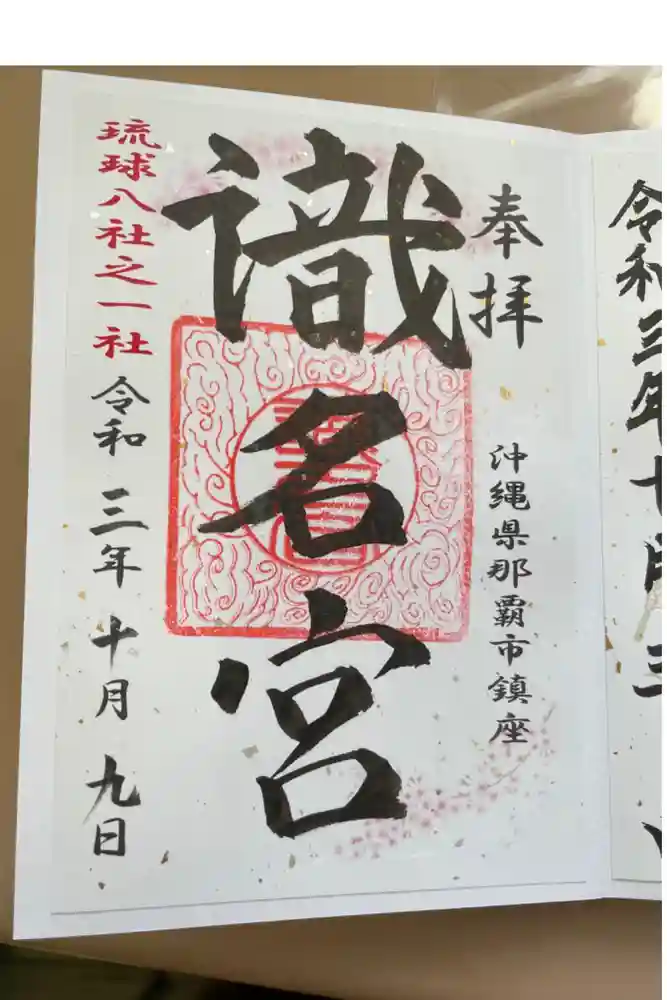 令和三年十月三
奉拝
沖縄県那覇市鎮座
識名宮
琉球八社之一社
令和三年十月九日